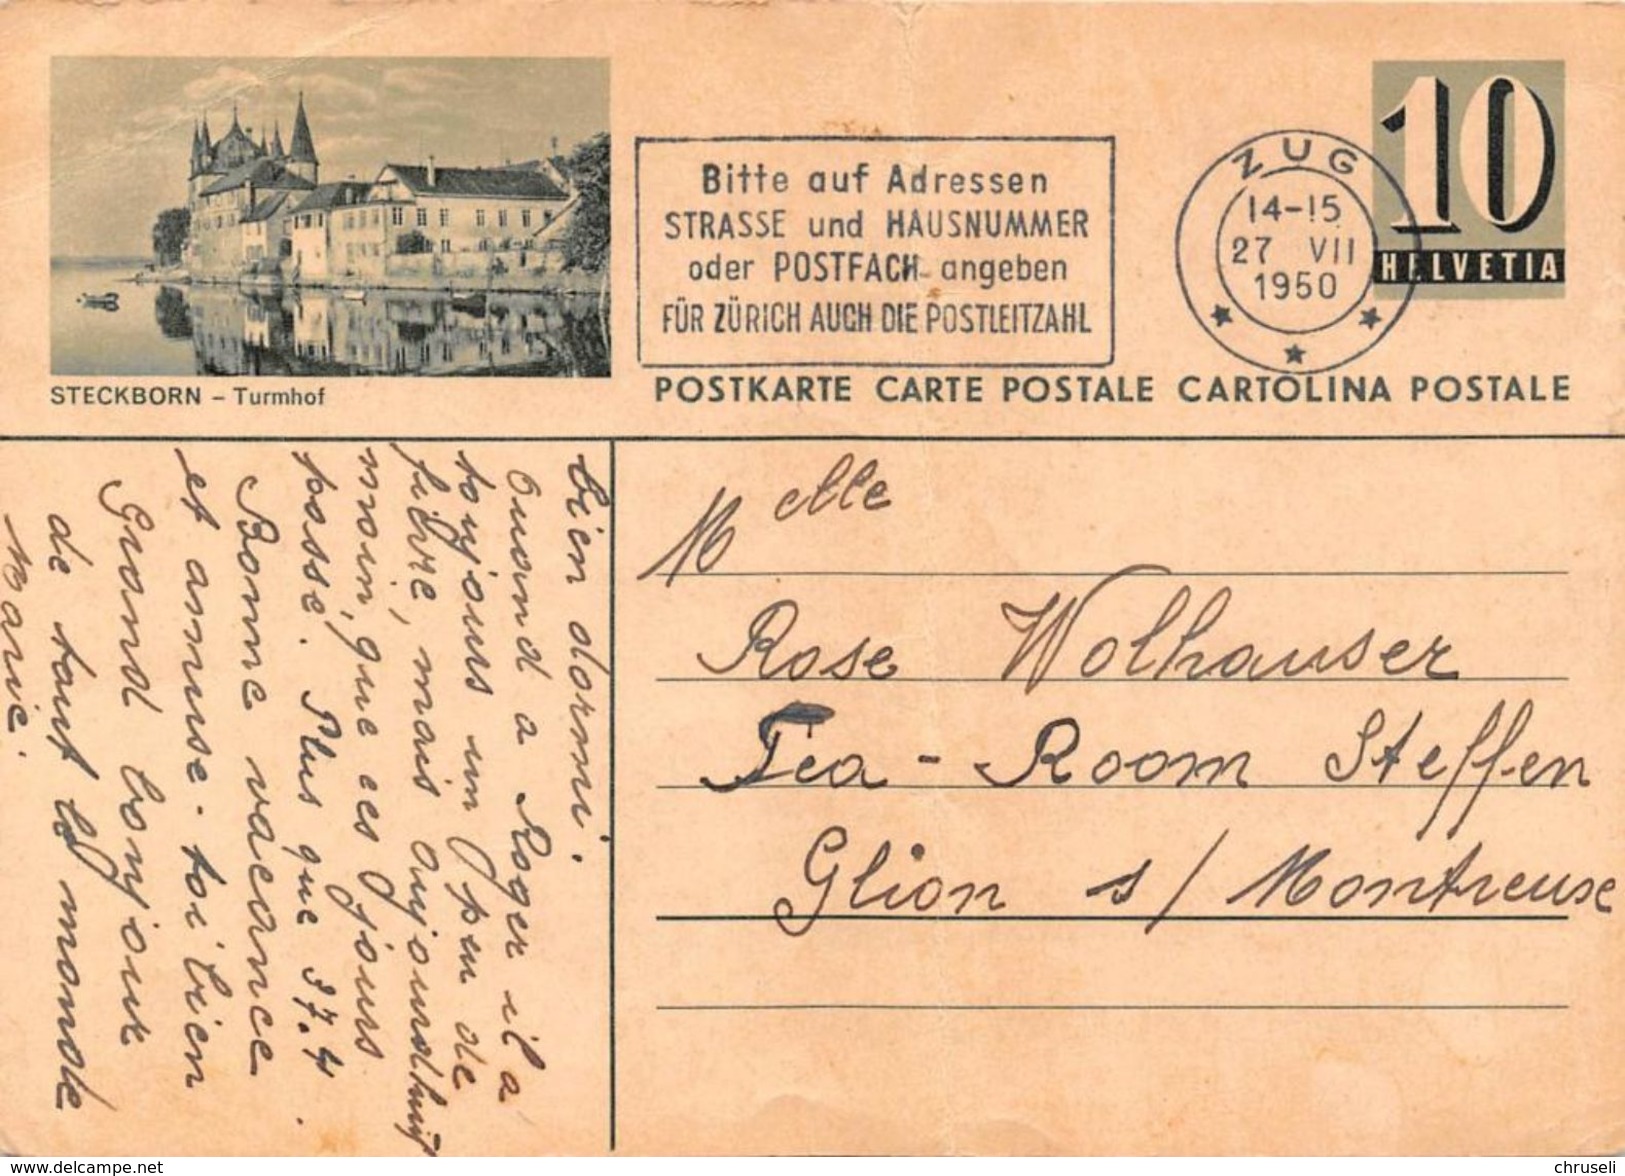 Bitte auf Adressen
STRASSE und HAUSNUMMER
oder POSTFACH angeben
FÜR ZÜRICH AUCH DIE POSTLEITZAHL
ZUG
14-15
27 VII
1950
10
HELVETIA
STECKBORN – Turmhof
POSTKARTE CARTE POSTALE CARTOLINA POSTALE
bien dormi.
Quand a Roger il a
toujours un peu de
fièvre, mais aujourdhui
moin, que ces jours
passé. Plus que 37.4.
Bonne vacance
et amuse-toi bien
Grand bonjour
de tout le monde
Marie.
Melle
Rose Wolhauser
Tea-Room Steffen
Glion s/ Montreuse
www.delcampe.net
chruseli